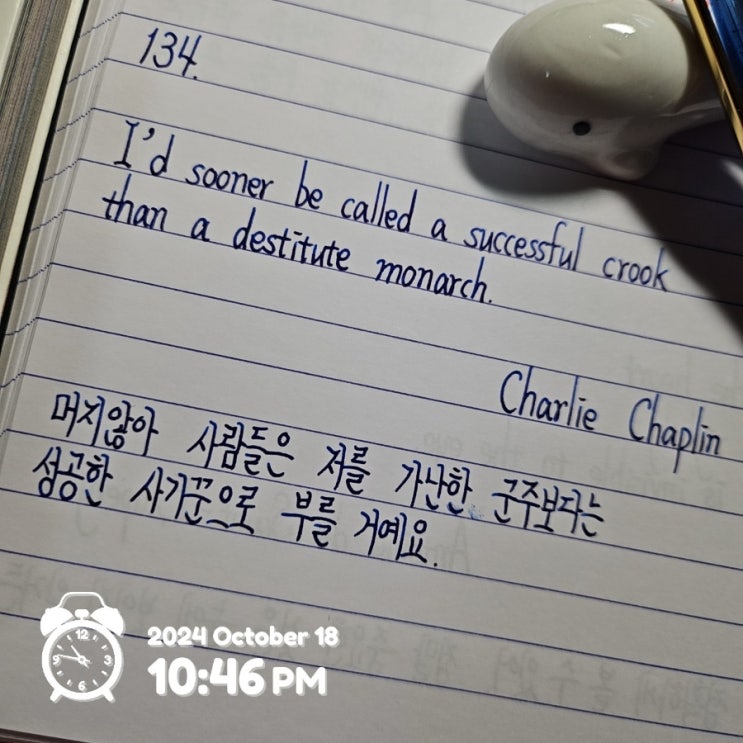 134.
I'd sooner be called a successful crook
than a destitute monarch.
Charlie Chaplin
머지않아 사람들은 저를 가난한 군주보다는
성공한 사기꾼으로 부를 거예요.
2024 October 18
10:46 PM